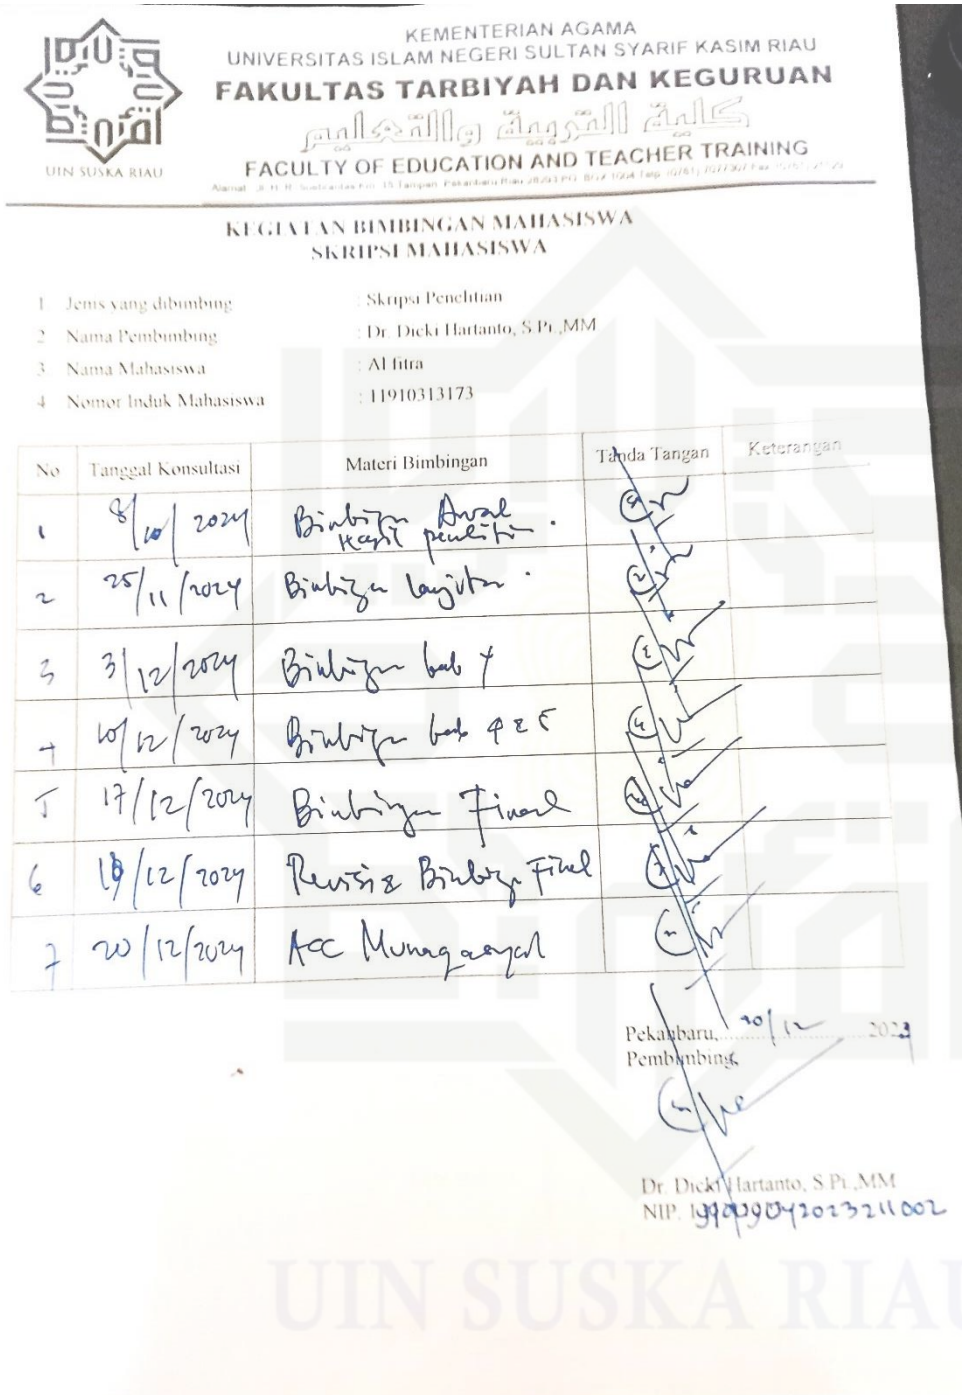 UIN SUSKA RIAU
KEMENTERIAN AGAMA
UNIVERSITAS ISLAM NEGERI SULTAN SYARIF KASIM RIAU
FAKULTAS TARBIYAH DAN KEGURUAN
كلية التربية والتعليم
FACULTY OF EDUCATION AND TEACHER TRAINING
KEGIATAN BIMBINGAN MAHASISWA
SKRIPSI MAHASISWA
1 Jenis yang dibimbing : Skripsi Penelitian
2 Nama Pembimbing : Dr. Dicki Hartanto, S.Pi.,MM
3 Nama Mahasiswa : Al fitra
4 Nomor Induk Mahasiswa : 11910313173
No Tanggal Konsultasi Materi Bimbingan Tanda Tangan Keterangan
1 8/10/2024 Bimbingan Awal
Hasil penelitian.
2 25/11/2024 Bimbingan lanjutan.
3 3/12/2024 Bimbingan bab 4
4 10/12/2024 Bimbingan bab 4 & 5
5 17/12/2024 Bimbingan Final
6 /12/2024 Revisi & Bimbingan Final
7 20/12/2024 Acc Munaqasyah
Pekanbaru, 20/12 202
Pembimbing,
Dr. Dicki Hartanto, S.Pi.,MM
NIP.
UIN SUSKA RIAU